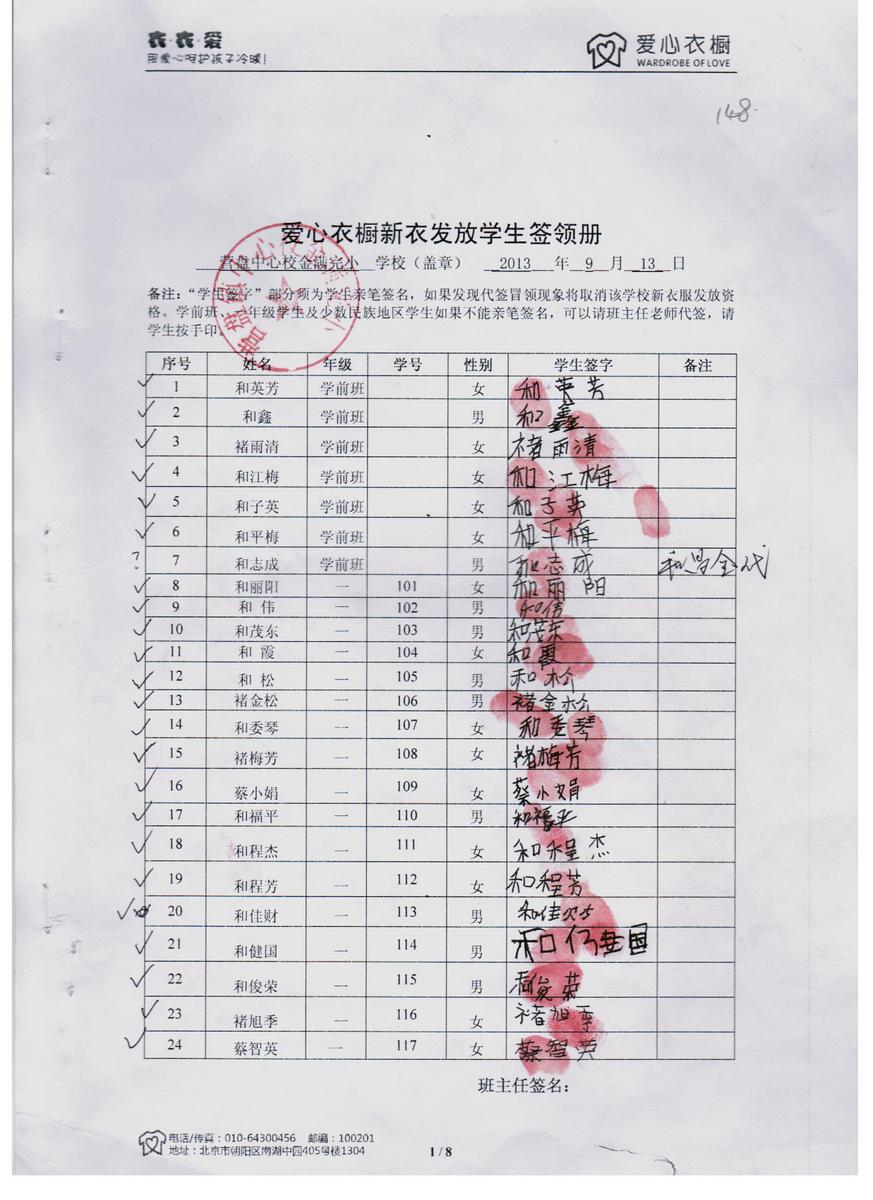 衣·衣·爱
用爱心呵护孩子冷暖!
爱心衣橱
WARDROBE OF LOVE
148.
爱心衣橱新衣发放学生签领册
营盘中心校金满完小 学校（盖章） 2013 年 9 月 13 日
备注：“学生签字”部分须为学生亲笔签名，如果发现代签冒领现象将取消该学校新衣服发放资
格。学前班、一年级学生及少数民族地区学生如果不能亲笔签名，可以请班主任老师代签，请
学生按手印。
序号 姓名 年级 学号 性别 学生签字 备注
√ 1 和英芳 学前班 女 和英芳
√ 2 和鑫 学前班 男 和鑫
√ 3 褚雨清 学前班 女 褚雨清
√ 4 和江梅 学前班 女 和江梅
√ 5 和子英 学前班 女 和子英
√ 6 和平梅 学前班 女 和平梅
? 7 和志成 学前班 男 和志成
√ 8 和丽阳 一 101 女 和丽阳
√ 9 和 伟 一 102 男 和伟
√ 10 和茂东 一 103 男 和茂东
√ 11 和 霞 一 104 女 和霞
√ 12 和 松 一 105 男 和松
√ 13 褚金松 一 106 男 褚金松
√ 14 和委琴 一 107 女 和委琴
√ 15 褚梅芳 一 108 女 褚梅芳
√ 16 蔡小娟 一 109 女 蔡小娟
√ 17 和福平 一 110 男 和福平
√ 18 和程杰 一 111 女 和程杰
√ 19 和程芳 一 112 女 和程芳
√ 20 和佳财 一 113 男 和佳财
√ 21 和健国 一 114 男 和健国
√ 22 和俊荣 一 115 男 俊荣
√ 23 褚旭季 一 116 女 褚旭季
√ 24 蔡智英 一 117 女 蔡智英
班主任签名：
电话/传真：010-64300456 邮编：100201
地址：北京市朝阳区南湖中园405号楼1304
1 / 8